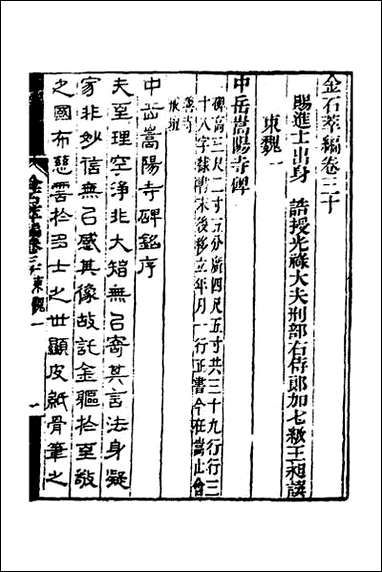 金石萃編卷三十
賜進士出身 誥授光祿大夫刑部右侍郎加七級王昶譔
東魏一
中岳嵩陽寺碑
碑高三尺二寸五分廣四尺五寸共三十九行行三
十八字隸書末後移立年月一行正書今在嵩山會
善寺
戒壇
中岳嵩陽寺碑銘序
夫至理空淨非大智無㠯寄其言法身凝
寂非妙信無㠯感其像故託金軀於至敬
之國布慈雲於多士之世顯皮紙骨筆之
金石萃編卷三十 東魏一
一